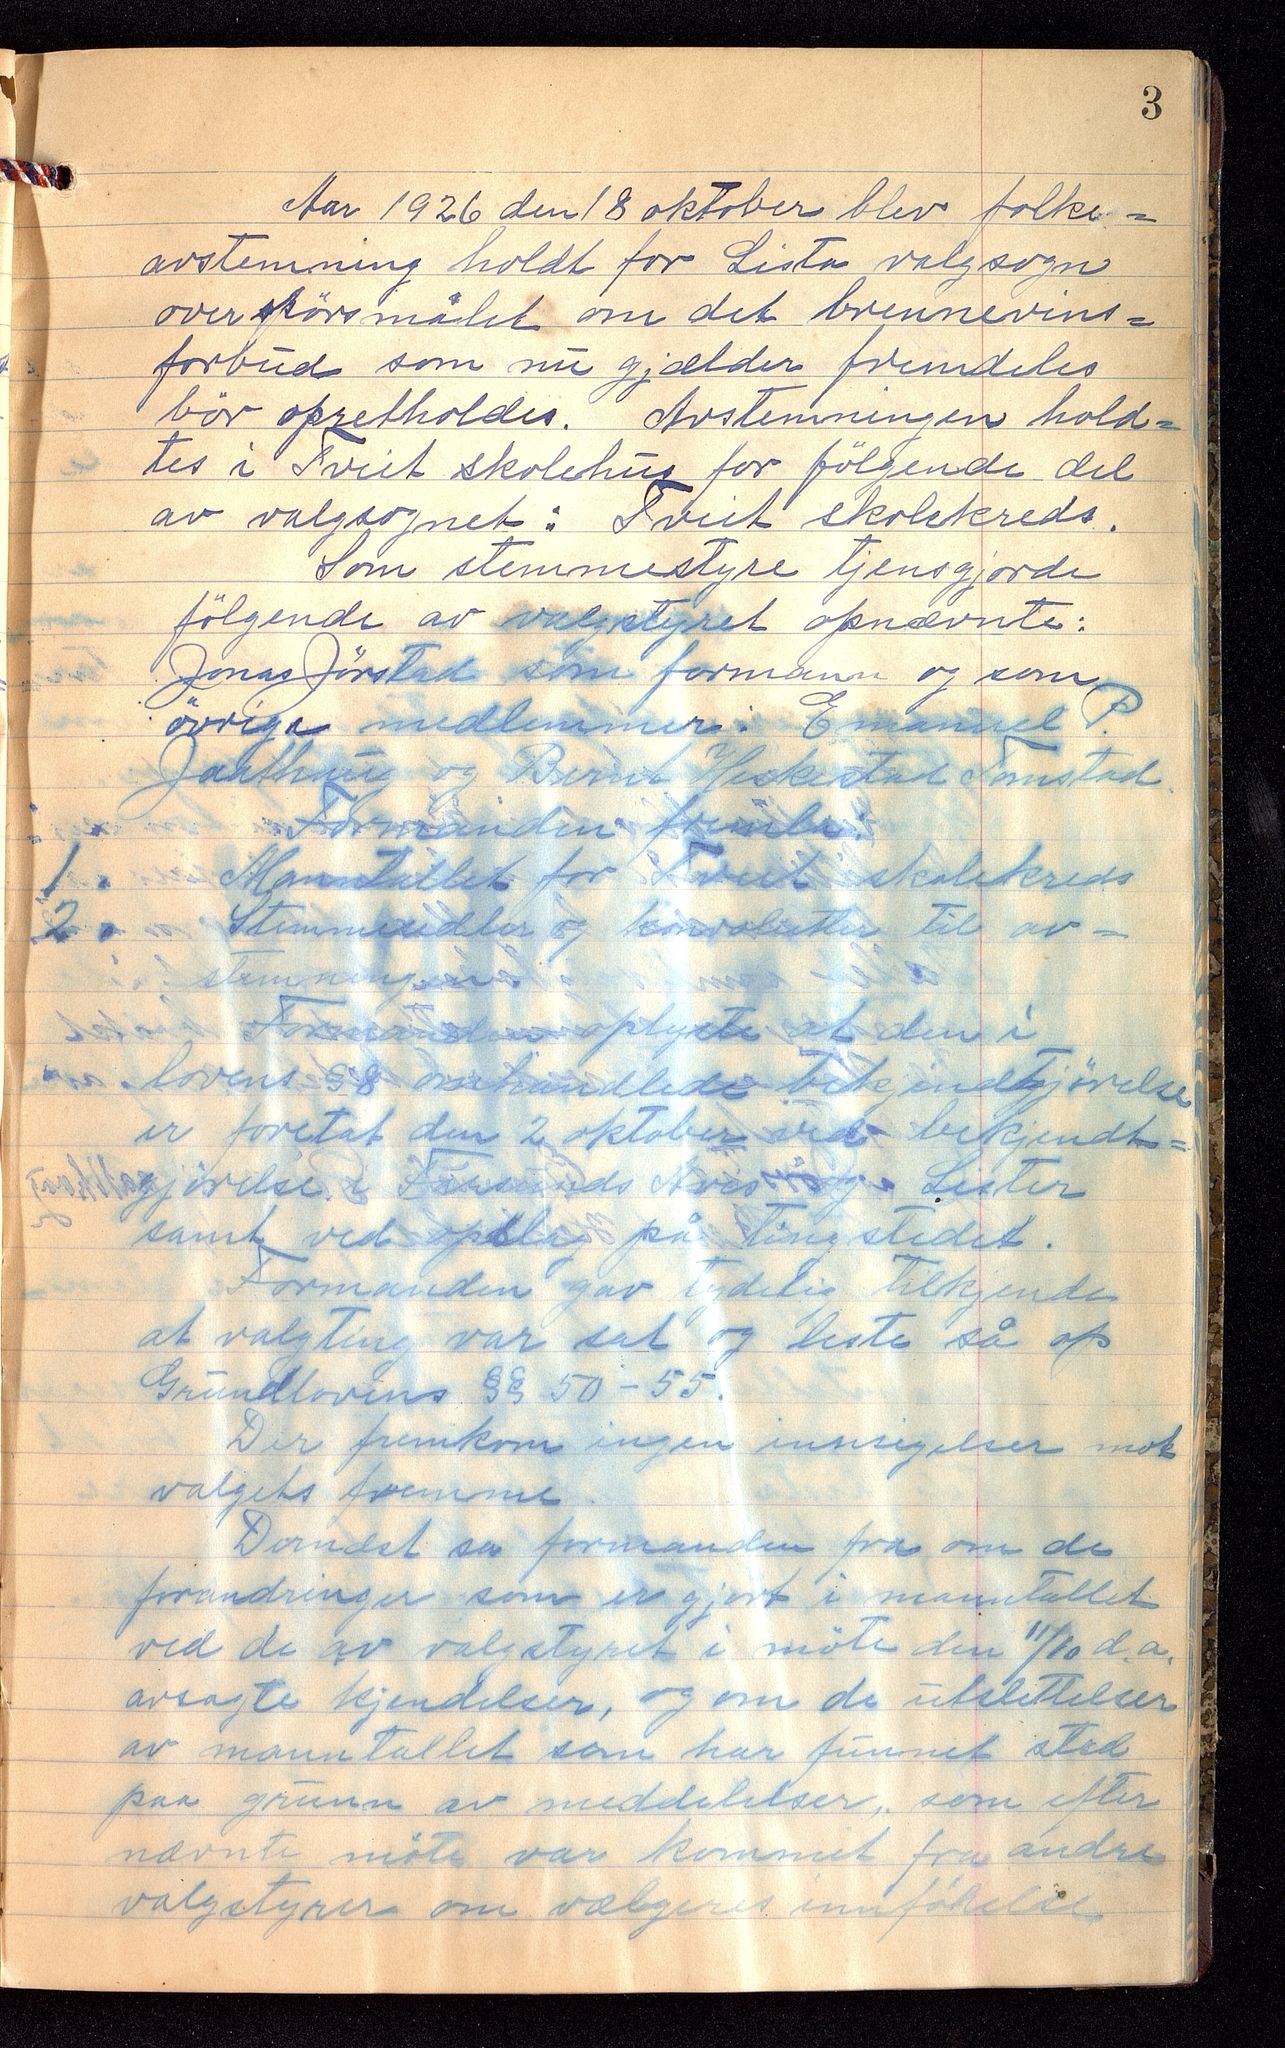 3
Aar 1926 den 18 oktober blev folke=
avstemning holdt for Lista valgsogn
over spörsmålet om det brennevins=
forbud som nu gjælder fremdeles
bör opretholdes. Avstemningen hold=
tes i Tveit skolehus for fölgende del
av valgsognet: Tveit skolekreds.
Som stemmestyre tjensgjorde
fölgende av valgstyret opnævnte:
Jonas Jörstad som formann og som
övrige medlemmer: Emanuel P.
Jaathaug og Bernt Heskestad Tomstad
Formanden fremla:
1. Manntallet for Tveit skolekreds
2. Stemmesedler og konvolutter til av=
stemningen.
Formanden oplyste at den i
lovens § 8 omhandlede bekjendtgjörelse
er foretat den 2 oktober ved bekjendt=
gjörelse i Farsunds Avis og Lister
samt ved opslag på tingstedet.
Formanden gav tydelig tilkjende
at valgting var sat og leste så op
Grundlovens §§ 50-55.
Der fremkom ingen innsigelser mot
valgets fremme.
Dernæst sa formanden fra om de
forandringer som er gjort i manntallet
ved de av valgstyret i möte den 11/10 d.a.
avsagte kjendelser, og om de utslettelser
av manntallet som har funnet sted
paa grunn av meddelelser, som efter
nævnte möte var kommet fra andre
valgstyrer om vælgeres innförelse